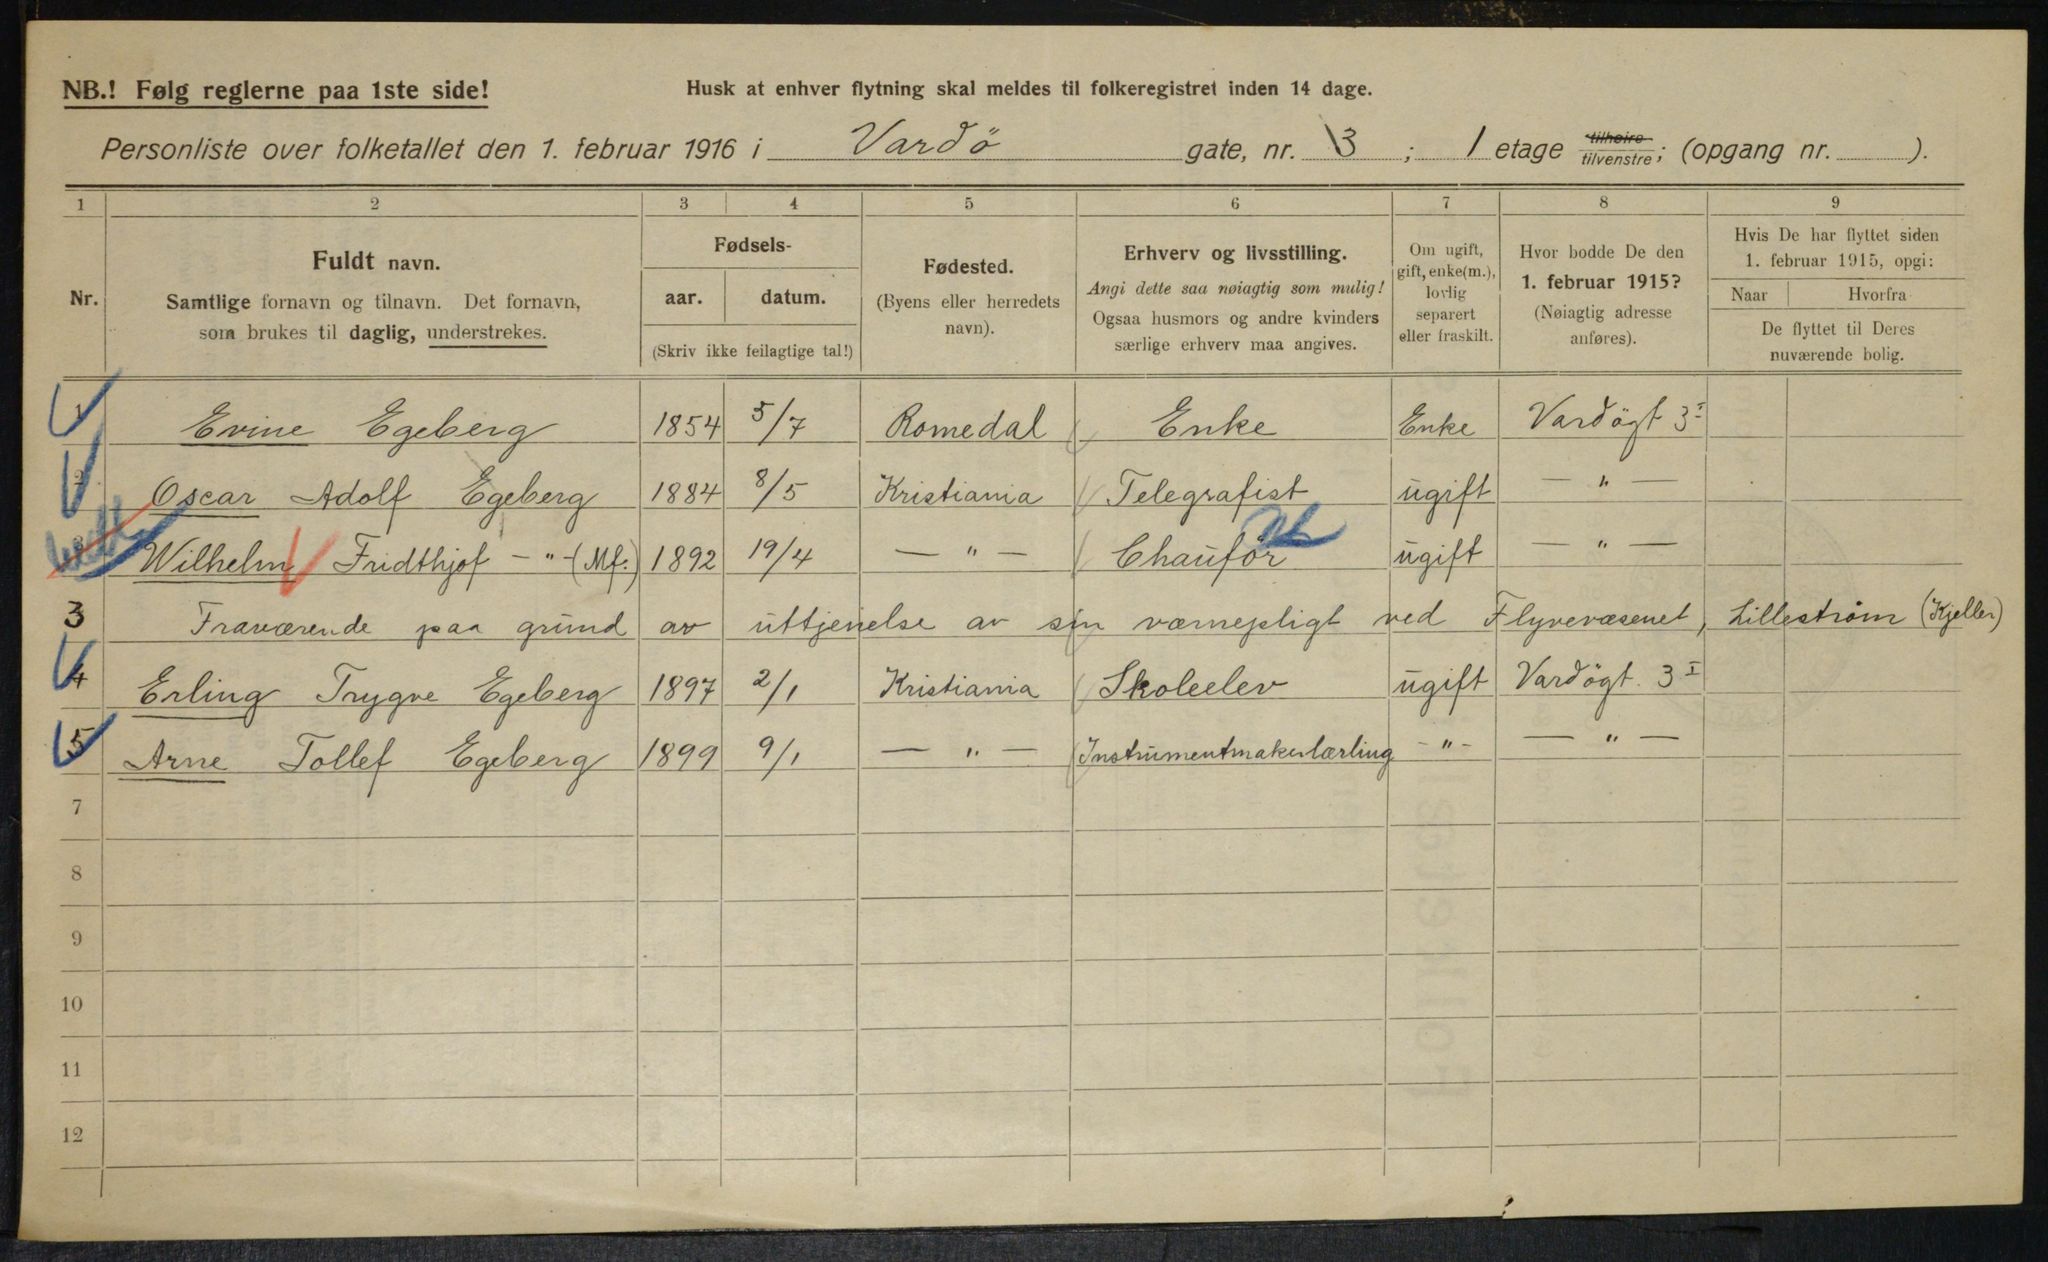 NB.! Følg reglerne paa 1ste side!
Husk at enhver flytning skal meldes til folkeregistret inden 14 dage.
Personliste over folketallet den 1. februar 1916 i Vardö gate, nr. 3 ; 1 etage tilhøire tilvenstre; (opgang nr. ).
1 2 3 4 5 6 7 8 9
Nr.
Fuldt navn.
Samtlige fornavn og tilnavn. Det fornavn,
som brukes til daglig, understrekes.
Fødsels-
aar. datum.
(Skriv ikke feilagtige tal!)
Fødested.
(Byens eller herredets
navn).
Erhverv og livsstilling.
Angi dette saa nøiagtig som mulig!
Ogsaa husmors og andre kvinders
særlige erhverv maa angives.
Om ugift,
gift, enke(m.),
lovlig
separert
eller fraskilt.
Hvor bodde De den
1. februar 1915?
(Nøiagtig adresse
anføres).
Hvis De har flyttet siden
1. februar 1915, opgi:
Naar Hvorfra
De flyttet til Deres
nuværende bolig.
1 Evine Egeberg 1854 5/7 Romedal Enke Enke Vardögt 3 I
2 Oscar Adolf Egeberg 1884 8/5 Kristiania Telegrafist ugift — " —
3 Wilhelm Fridthjof - " - (Mf.) 1892 19/4 — " — Chauför ugift — " —
3 Fraværende paa grund av uttjenelse av sin værnepligt ved Flyvevæsenet, Lillestrøm (Kjeller)
4 Erling Trygve Egeberg 1897 2/1 Kristiania Skoleelev ugift Vardögt. 3 I
5 Arne Tollef Egeberg 1899 9/1 — " — Instrumentmakerlærling - " - — " —
7
8
9
10
11
12